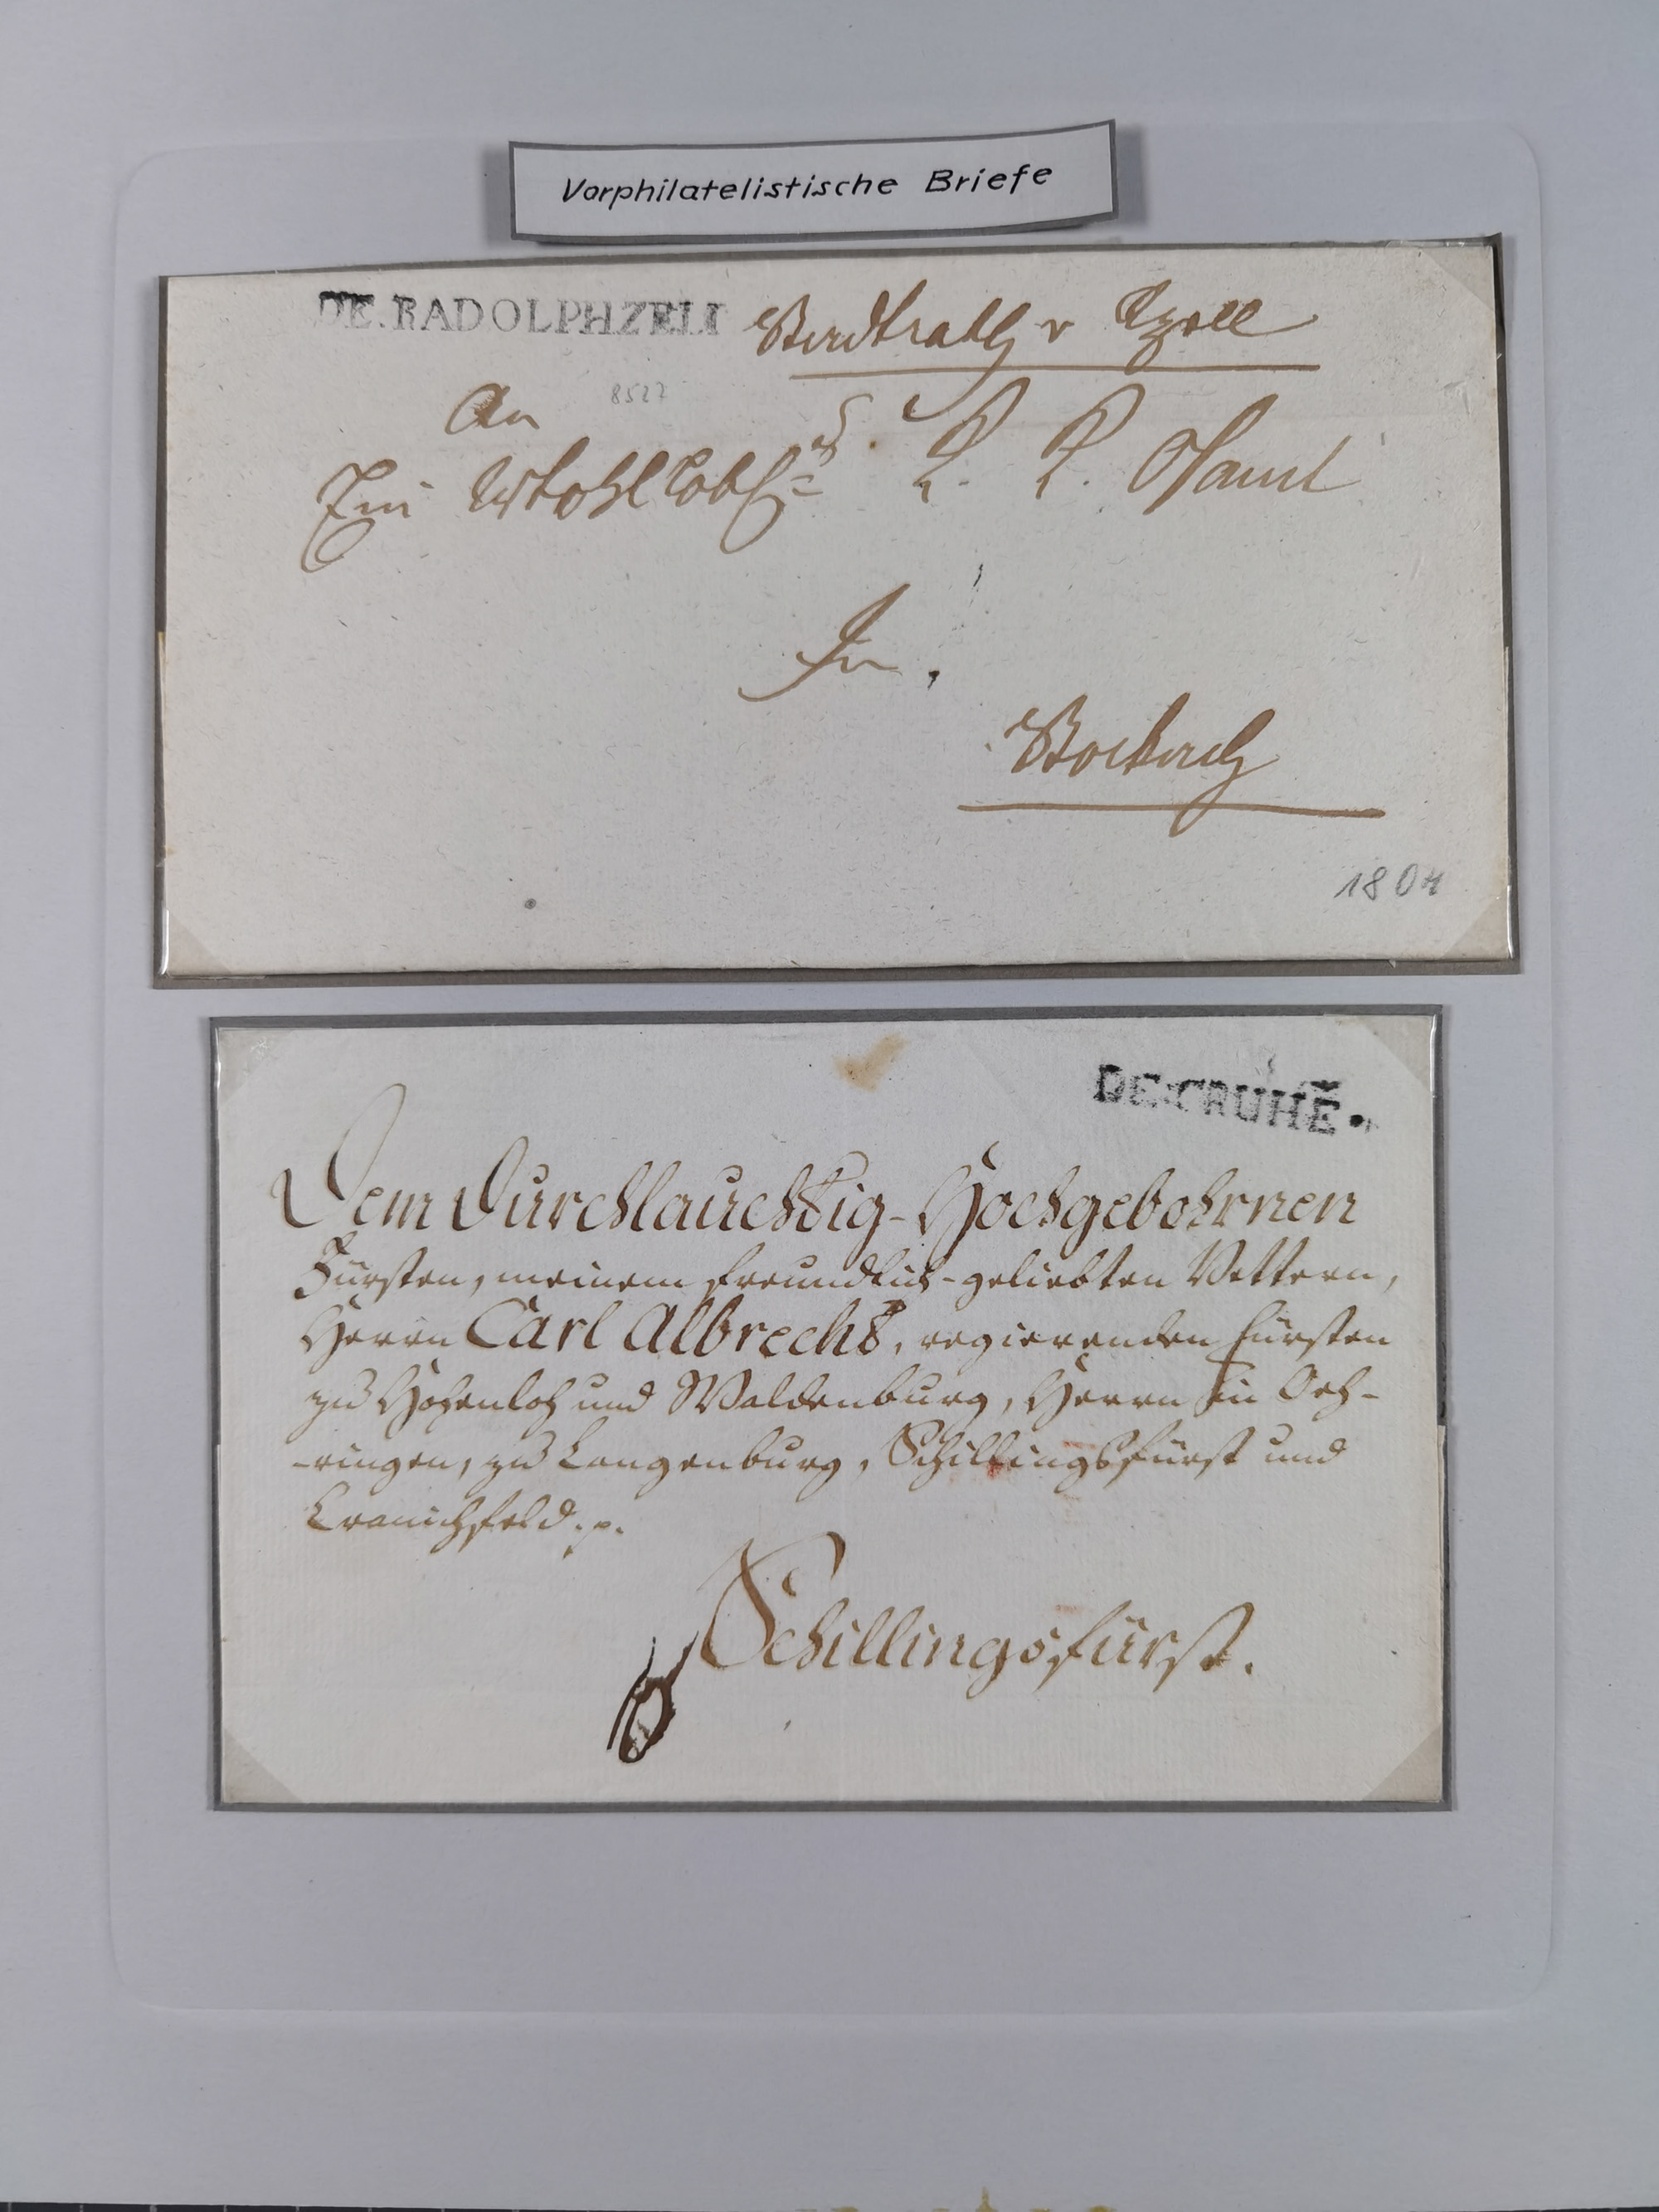 Vorphilatelistische Briefe
DE.RADOLPHZELL
Stadtrath v Rzell
An 8527
Ein Wohllobl. K. K. Oamt
In
Stockach
1804
DE.CRUHE.
Dem Durchlauchtig-Hochgebohrnen
Fürsten, meinem freundlich-geliebten Vettern,
Herrn Carl Albrecht, regierenden Fürsten
zu Hohenloh und Waldenburg, Herrn in Oeh-
-ringen, zu Langenburg, Schillingsfürst und
Cranichfeld. p.
Schillingsfürst.